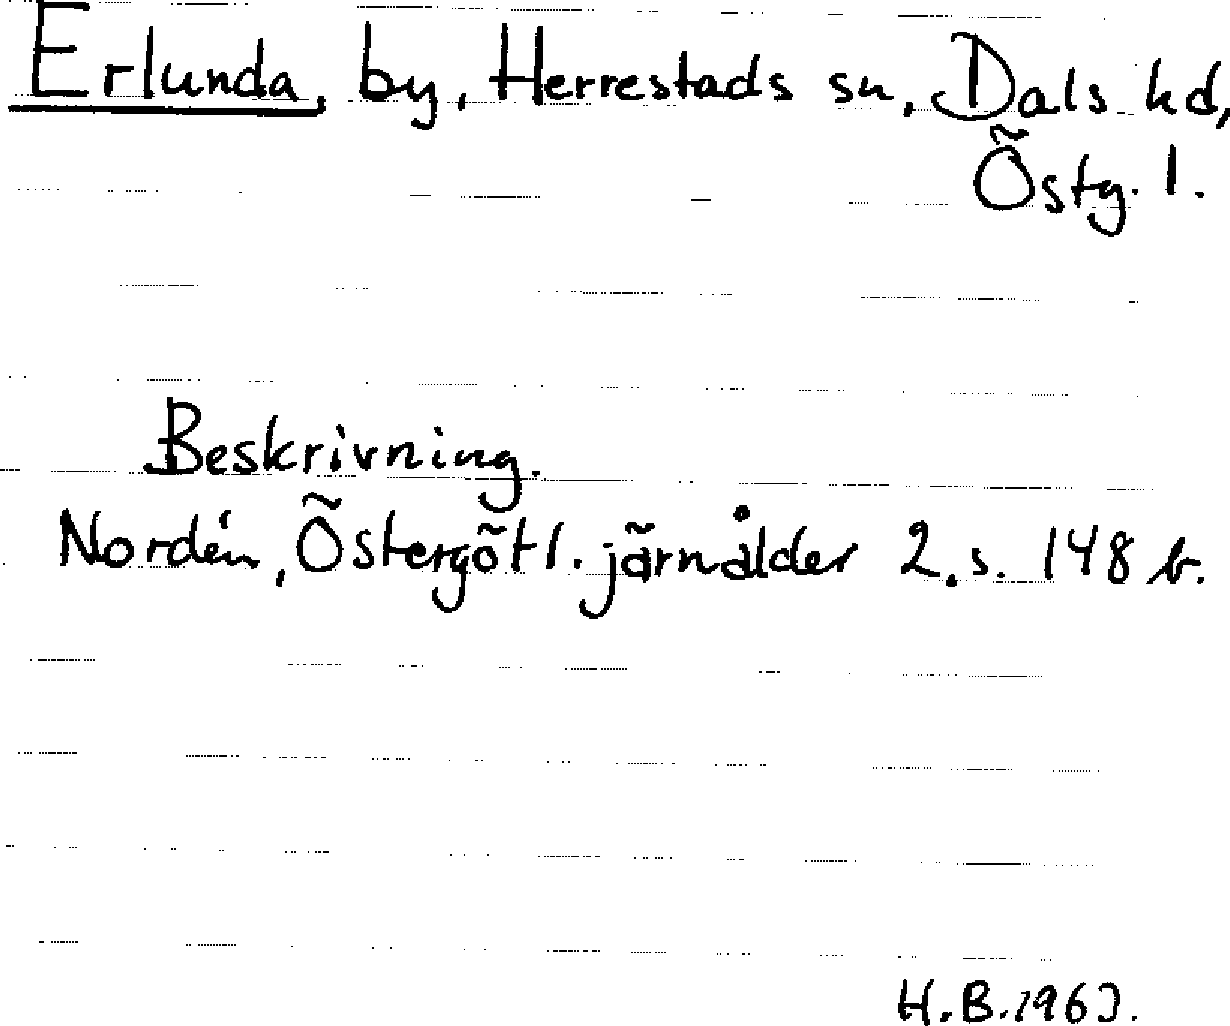 Erlunda, by, Herrestads sn, Dals hd,
Östg. l.
Beskrivning.
Nordén, Östergötl. järnålder 2. s. 148 b.
H.B. 1963.